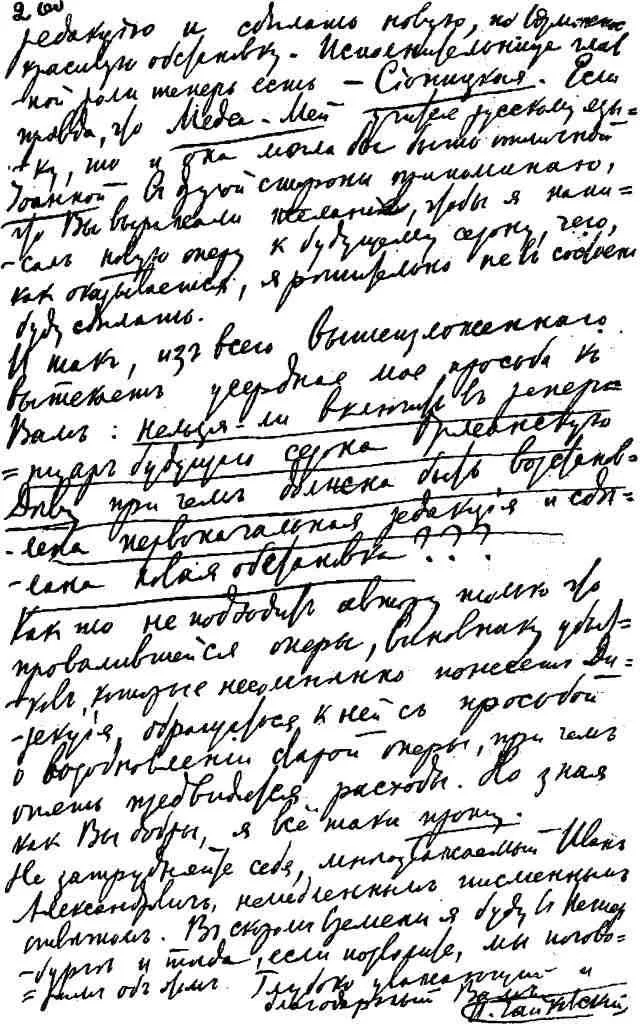 редакцію и сдѣлать новую, по возможности
красивую обстановку. Исполнительница глав-
-ной роли теперь есть – Сіоницкая. Если
правда, что Медеа-Мей учится русскому язы-
-ку, то и она могла бы быть отличной
Іоанной. Съ другой стороны припоминаю,
что Вы выражали желаніе, чтобы я напи-
-салъ новую оперу къ будущему сезону, чего,
какъ оказывается, я рѣшительно не въ состояніи
буду сдѣлать.
И такъ, изъ всего вышеизложеннаго
вытекаетъ усердная моя просьба къ
Вамъ: нельзя-ли включить въ репер-
=туаръ будущаго сезона Орлеанскую
Дѣву при чемъ должна быть возстанов-
-лена первоначальная редакція и сдѣ-
-лана новая обстановка???
Какъ то не подходитъ автору только что
провалившейся оперы, виновнику убыт-
-ковъ, которые несомнѣнно понесетъ Ди-
-рекція, обращаться къ ней съ просьбой
о возобновленіи старой оперы, при чемъ
опять предвидятся расходы. Но зная
какъ Вы добры, я всё таки прошу.
Не затрудняйте себя, многоуважаемый Иванъ
Александровичъ, немедленнымъ письменнымъ
отвѣтомъ. Въ скоромъ времени я буду въ Петер-
-бургѣ и тогда, если позволите, мы погово-
=римъ объ этомъ. Глубоко уважающій и
благодарный Вамъ
П. Чайковскій